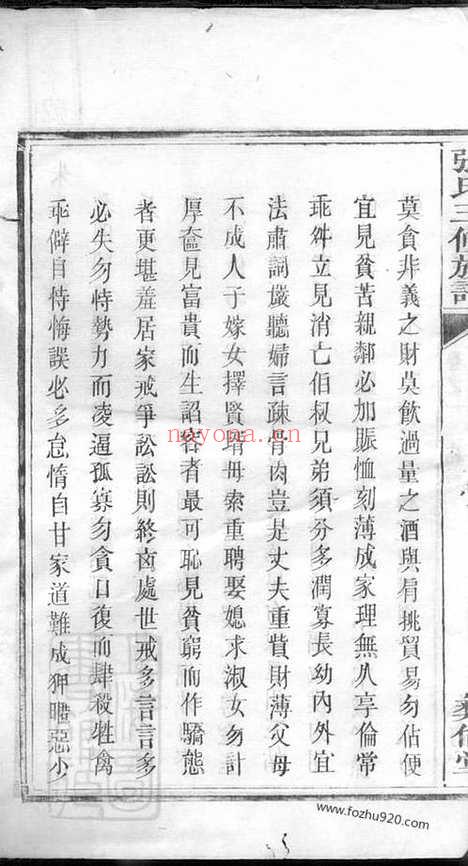 張氏三修族譜
莫貪非義之財莫飲過量之酒與肩挑貿易勿佔便
宜見貧苦親鄰必加賑恤刻薄成家理無久享倫常
乖舛立見消亡伯叔兄弟須分多潤寡長幼內外宜
法肅詞嚴聽婦言疎骨肉豈是丈夫重貲財薄父母
不成人子嫁女擇賢壻毋索重聘娶媳求淑女勿計
厚奩見富貴而生諂容者最可恥見貧窮而作驕態
者更堪羞居家戒爭訟訟則終凶處世戒多言言多
必失勿恃勢力而凌逼孤寡勿貪口復而肆殺牲禽
乖僻自恃悔誤必多怠惰自甘家道難成狎暱惡少
nayona.cn
www.fozhu920.com